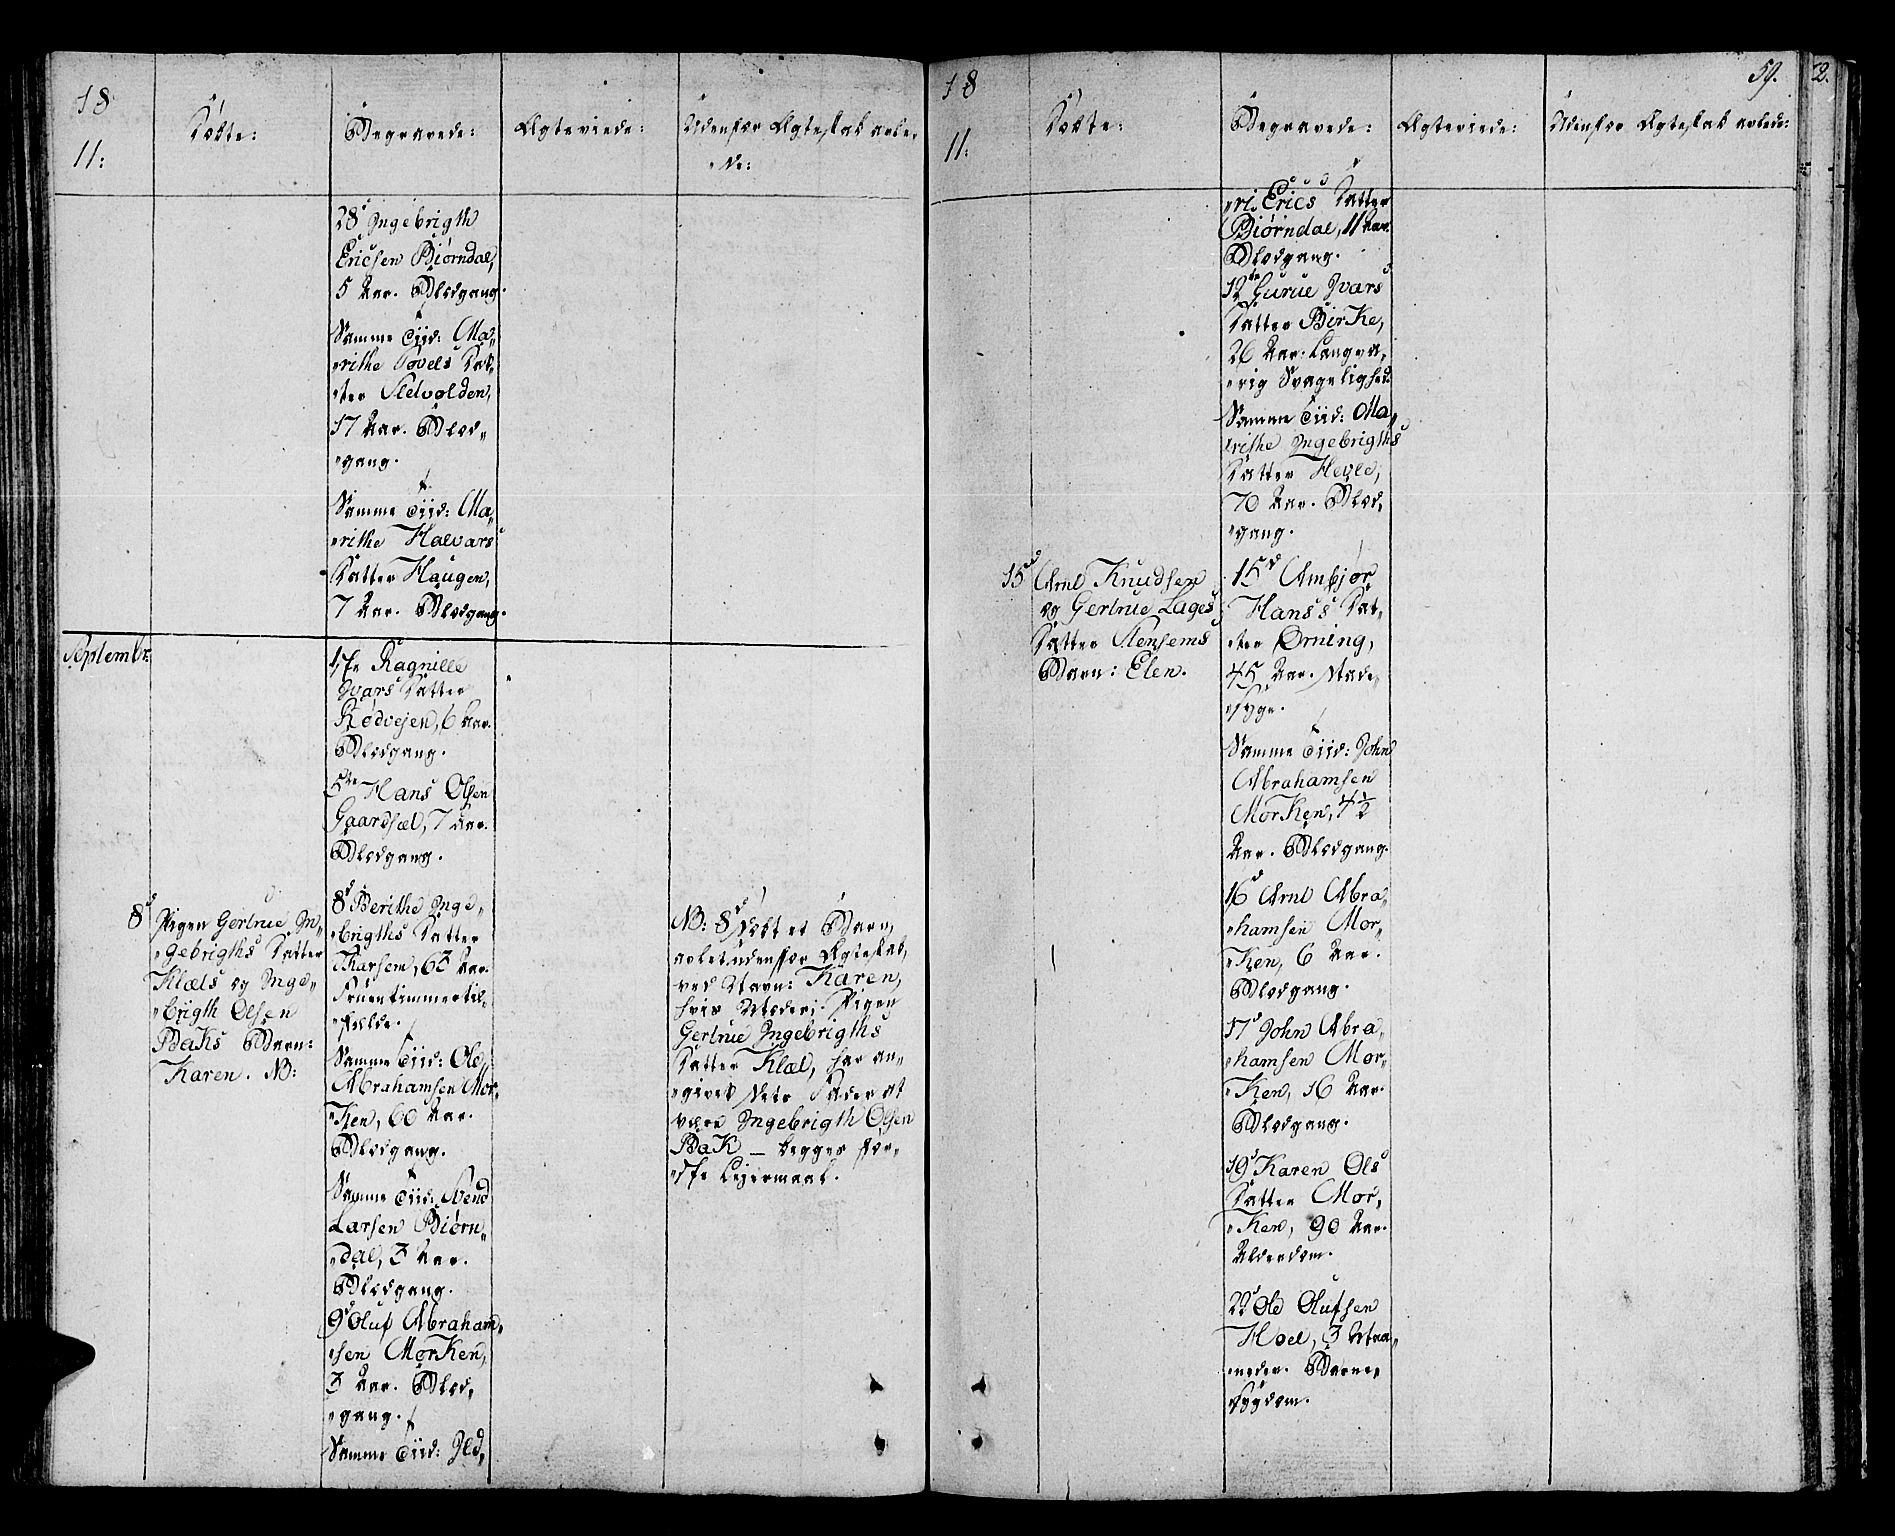 18
11:
Døbte:
Begravede:
Ægteviede:
Udenfor Ægteskab avle-
de:
28d Ingebrigth
Ericsen Biørndal,
5 Aar. Blodgang.
Samme Tiid: Ma-
rithe Povels Dat-
ter Stedvolden,
17 Aar. Blod-
gang.
Samme Tiid: Ma-
rithe Halvars
Datter Haugen,
7 Aar. Blodgang.
Septembr:
1ste Ragnille
Ivars Datter
Rødvejen, 6 Aar.
Blodgang.
5te Hans Olsen
Gaardsæl, 7 Aar.
Blodgang.
8d
Pigen Gertrue In-
gebrigths Datter
Klæls og Inge-
brigth Olsen
Baks Barn:
Karen. NB:
8d Berithe Inge-
brigths Datter
Tharsem, 63 Aar.
Fruentimmertil-
fælde.
Samme Tiid: Ole
Abrahamsen Mor-
ken, 60 Aar.
Blodgang.
Samme Tiid: Svend
Larsen Biørn-
dal, 3 Aar.
Blodgang.
9d Oluf Abraham-
sen Morken,
3 Aar. Blod-
gang.
Samme Tiid: Sld-
NB: 8d Døbt et Barn,
avlet udenfor Ægteskab,
ved Navn: Karen,
hvis Moder: Pigen
Gertrue Ingebrigths
Datter Klæl, har an-
givet dets Fader at
være Ingebrigth Olsen
Bak – begges før-
ste Leiermaal.
18
11:
59.
2.
Døbte:
Begravede:
Ægteviede:
Udenfor Ægteskab avlede:
ri Erics Datter
Biørndal, 11 Aar.
Blodgang.
12te Gurue Ivars
Datter Birke,
26 Aar. Langva-
rig Svagelighed.
Samme Tiid: Ma-
rithe Ingebrigths
Datter Hevle,
70 Aar. Blod-
gang.
15d
Arnt Knudsen
og Gertrue Lages
Datter Stensems
Barn: Elen.
15d Ambjør
Hans's Dat-
ter Ørning,
45 Aar. Rade-
syge.
Samme Tiid: John
Abrahamsen
Morken, 4½
Aar. Blodgang.
16d Arnt Abra-
hamsen Mor-
ken, 6 Aar.
Blodgang.
17d John Abra-
hamsen Mor-
ken, 16 Aar.
Blodgang.
19d Karen Ols
Datter Mor-
ken, 90 Aar.
Alderdom.
22d Ole Olufsen
Hoel, 3 Maa-
neder. Barne-
sygdom.